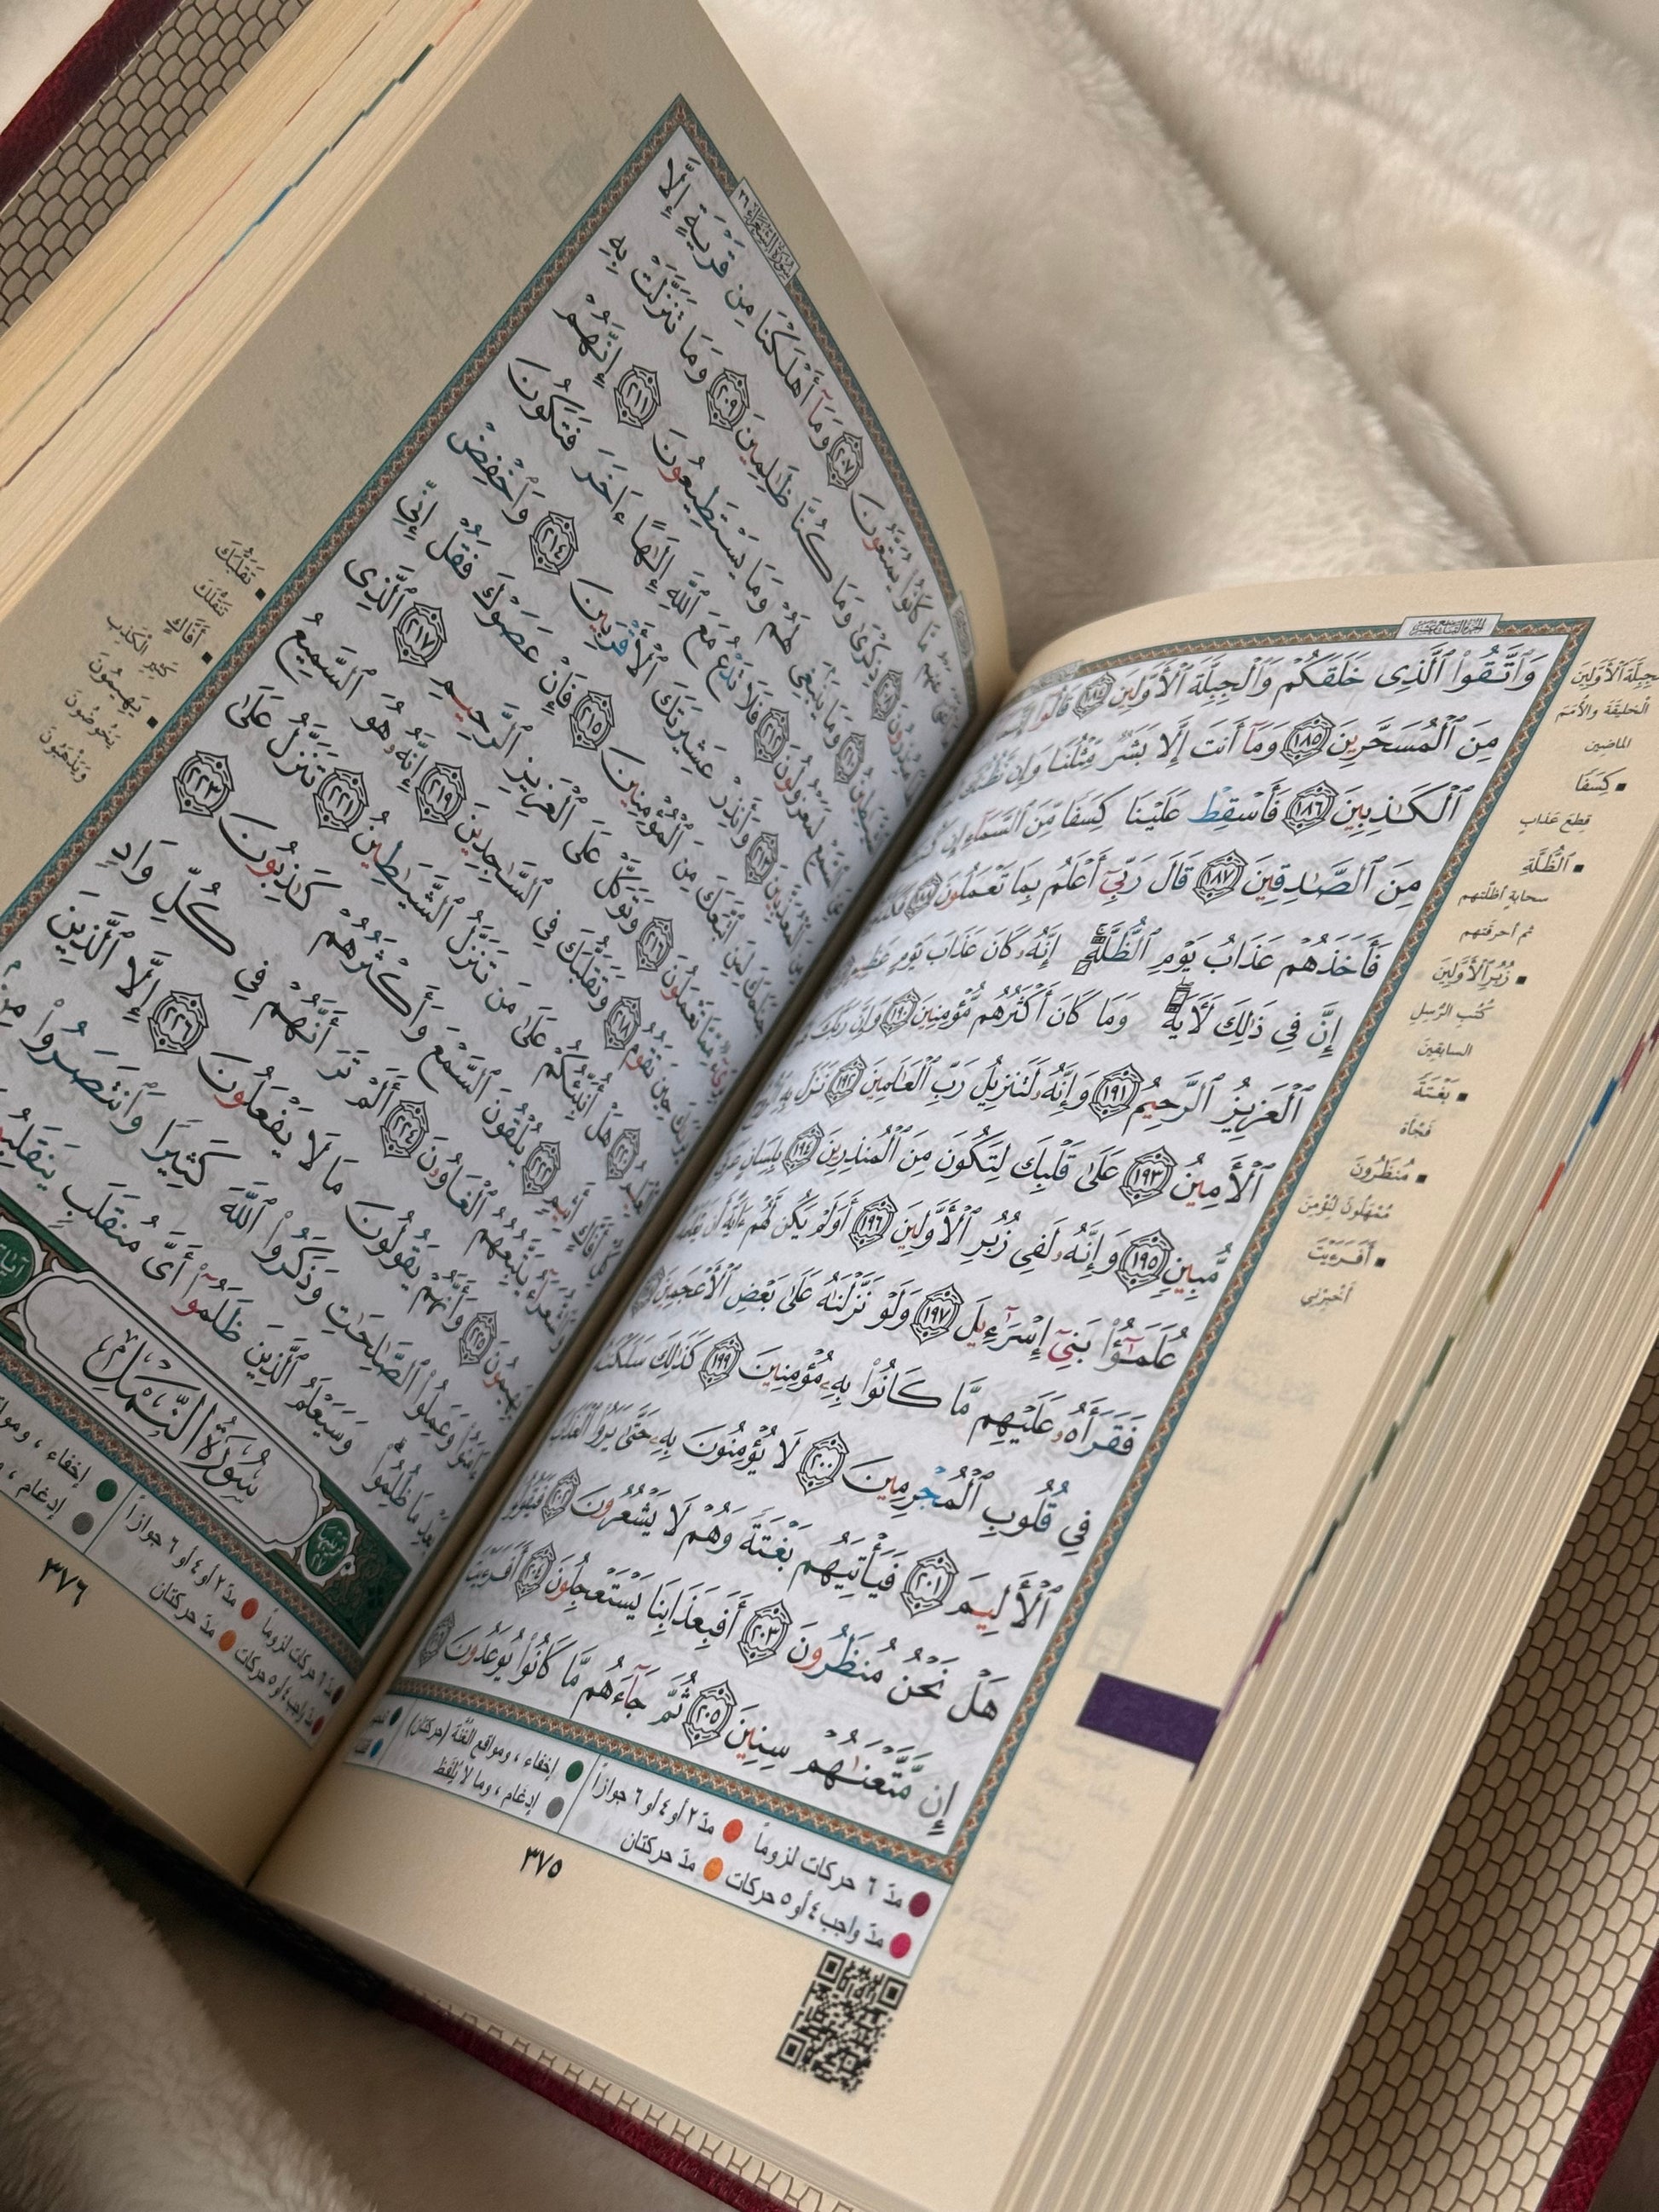 وَٱتَّقُوا۟ ٱلَّذِى خَلَقَكُمْ وَٱلْجِبِلَّةَ ٱلْأَوَّلِينَ ١٨٤ قَالُوٓا۟
مِنَ ٱلْمُسَحَّرِينَ ١٨٥ وَمَآ أَنتَ إِلَّا بَشَرٌ مِّثْلُنَا وَإِن
ٱلْكَـٰذِبِينَ ١٨٦ فَأَسْقِطْ عَلَيْنَا كِسَفًا مِّنَ ٱلسَّمَآءِ إِن
مِنَ ٱلصَّـٰدِقِينَ ١٨٧ قَالَ رَبِّىٓ أَعْلَمُ بِمَا تَعْمَلُونَ ١٨٨
فَأَخَذَهُمْ عَذَابُ يَوْمِ ٱلظُّلَّةِ ۚ إِنَّهُۥ كَانَ عَذَابَ يَوْمٍ عَظِيمٍ
إِنَّ فِى ذَٰلِكَ لَـَٔايَةً ۖ وَمَا كَانَ أَكْثَرُهُم مُّؤْمِنِينَ ١٩٠ وَإِنَّ رَبَّكَ
ٱلْعَزِيزُ ٱلرَّحِيمُ ١٩١ وَإِنَّهُۥ لَتَنزِيلُ رَبِّ ٱلْعَـٰلَمِينَ ١٩٢ نَزَلَ بِهِ
ٱلْأَمِينُ ١٩٣ عَلَىٰ قَلْبِكَ لِتَكُونَ مِنَ ٱلْمُنذِرِينَ ١٩٤ بِلِسَانٍ
مُّبِينٍ ١٩٥ وَإِنَّهُۥ لَفِى زُبُرِ ٱلْأَوَّلِينَ ١٩٦ أَوَلَمْ يَكُن لَّهُمْ ءَايَةً أَن
عُلَمَـٰٓؤُا۟ بَنِىٓ إِسْرَٰٓءِيلَ ١٩٧ وَلَوْ نَزَّلْنَـٰهُ عَلَىٰ بَعْضِ ٱلْأَعْجَمِينَ
فَقَرَأَهُۥ عَلَيْهِم مَّا كَانُوا۟ بِهِۦ مُؤْمِنِينَ ١٩٩ كَذَٰلِكَ سَلَكْنَـٰهُ
فِى قُلُوبِ ٱلْمُجْرِمِينَ ٢٠٠ لَا يُؤْمِنُونَ بِهِۦ حَتَّىٰ يَرَوُا۟ ٱلْعَذَابَ
ٱلْأَلِيمَ ٢٠١ فَيَأْتِيَهُم بَغْتَةً وَهُمْ لَا يَشْعُرُونَ ٢٠٢ فَيَقُولُوا۟
هَلْ نَحْنُ مُنظَرُونَ ٢٠٣ أَفَبِعَذَابِنَا يَسْتَعْجِلُونَ ٢٠٤ أَفَرَءَيْتَ
إِن مَّتَّعْنَـٰهُمْ سِنِينَ ٢٠٥ ثُمَّ جَآءَهُم مَّا كَانُوا۟ يُوعَدُونَ
ٱلْجِبِلَّةَ ٱلْأَوَّلِينَ
الخليقة والأمم
الماضين
كِسَفًا
قطع عذاب
ٱلظُّلَّةِ
سحابة أظلتهم
ثم أحرقتهم
زُبُرِ ٱلْأَوَّلِينَ
كتب الرسل
السابقين
بَغْتَةً
فجأة
مُنظَرُونَ
ممهلون لنؤمن
أَفَرَءَيْتَ
أخبرني
مدّ ٦ حركات لزوماً مدّ ٢ أو ٤ أو ٦ جوازاً إخفاء ، ومواقع الغُنَّة (حركتان)
مدّ واجب ٤ أو ٥ حركات مدّ حركتان إدغام ، وما لا يُلفَظ
٣٧٥
سُورَةُ الشُّعَرَاءِ ٢٦
مَّا كَانُوا۟ يُمَتَّعُونَ ٢٠٧ وَمَآ أَهْلَكْنَا مِن قَرْيَةٍ إِلَّا
ذِكْرَىٰ وَمَا كُنَّا ظَـٰلِمِينَ ٢٠٩ وَمَا تَنَزَّلَتْ بِهِ
وَمَا يَنۢبَغِى لَهُمْ وَمَا يَسْتَطِيعُونَ ٢١١ إِنَّهُمْ
لَمَعْزُولُونَ ٢١٢ فَلَا تَدْعُ مَعَ ٱللَّهِ إِلَـٰهًا ءَاخَرَ فَتَكُونَ
٢١٣ وَأَنذِرْ عَشِيرَتَكَ ٱلْأَقْرَبِينَ ٢١٤ وَٱخْفِضْ
ٱتَّبَعَكَ مِنَ ٱلْمُؤْمِنِينَ ٢١٥ فَإِنْ عَصَوْكَ فَقُلْ إِنِّى
تَعْمَلُونَ ٢١٦ وَتَوَكَّلْ عَلَى ٱلْعَزِيزِ ٱلرَّحِيمِ ٢١٧ ٱلَّذِى
حِينَ تَقُومُ ٢١٨ وَتَقَلُّبَكَ فِى ٱلسَّـٰجِدِينَ ٢١٩ إِنَّهُۥ هُوَ ٱلسَّمِيعُ
هَلْ أُنَبِّئُكُمْ عَلَىٰ مَن تَنَزَّلُ ٱلشَّيَـٰطِينُ ٢٢١ تَنَزَّلُ عَلَىٰ
أَفَّاكٍ أَثِيمٍ ٢٢٢ يُلْقُونَ ٱلسَّمْعَ وَأَكْثَرُهُمْ كَـٰذِبُونَ ٢٢٣
يَتَّبِعُهُمُ ٱلْغَاوُۥنَ ٢٢٤ أَلَمْ تَرَ أَنَّهُمْ فِى كُلِّ وَادٍ
يَهِيمُونَ ٢٢٥ وَأَنَّهُمْ يَقُولُونَ مَا لَا يَفْعَلُونَ ٢٢٦ إِلَّا ٱلَّذِينَ
ءَامَنُوا۟ وَعَمِلُوا۟ ٱلصَّـٰلِحَـٰتِ وَذَكَرُوا۟ ٱللَّهَ كَثِيرًا وَٱنتَصَرُوا۟ مِنۢ
بَعْدِ مَا ظُلِمُوا۟ ۗ وَسَيَعْلَمُ ٱلَّذِينَ ظَلَمُوٓا۟ أَىَّ مُنقَلَبٍ
سُورَةُ النَّمْلِ
تَقَلُّبَكَ
تنقلك
أَفَّاكٍ
كثير الكذب
يَهِيمُونَ
يخوضون
ويذهبون
مدّ ٦ حركات لزوماً مدّ ٢ أو ٤ أو ٦ جوازاً إخفاء ،
مدّ واجب ٤ أو ٥ حركات مدّ حركتان إدغام ،
٣٧٦